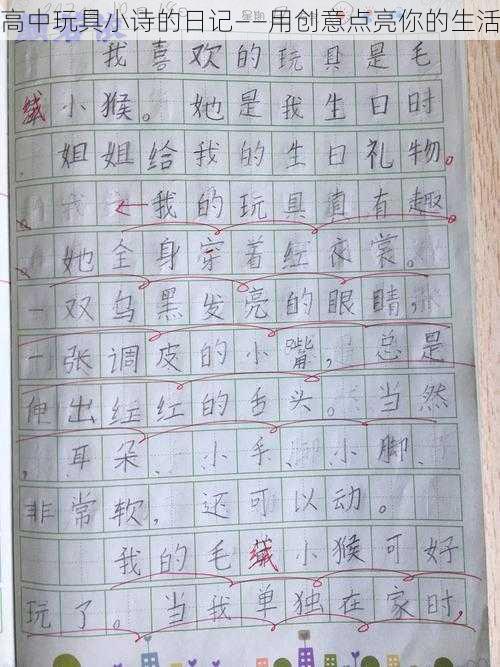 高中玩具小诗的日记——用创意点亮你的生活
我喜欢的玩具是毛
绒小猴。她是我生日时
姐姐给我的生日礼物。
我的玩具真有趣
她全身穿着红衣裳。
一双乌黑发亮的眼睛，
一张调皮的小嘴，总是
伸出红红的舌头。当然
，耳朵、小手、小脚、
非常软，还可以动。
我的毛绒小猴可好
玩了。当我单独在家时，